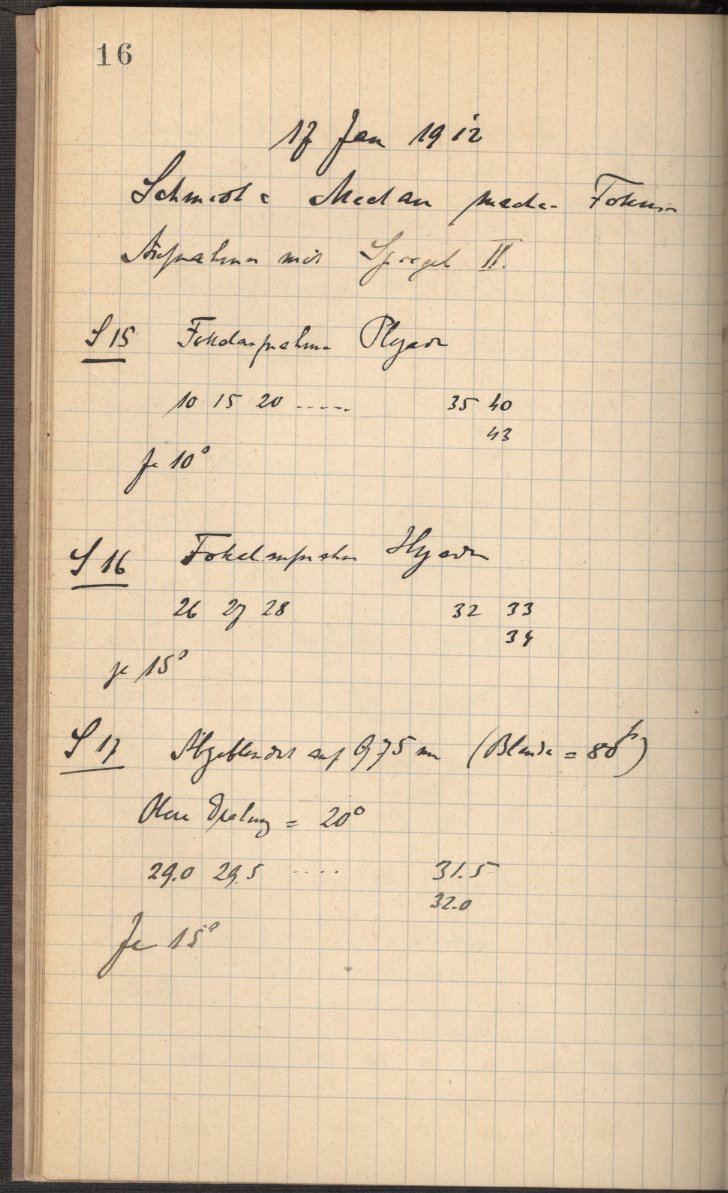 16
17 Jan 1912
Schmidt & Mechau machen Fokus-
Aufnahmen mit Spiegel II.
S 15 Fokalaufnahme Plejaden
10 15 20 ...... 35 40
43
Je 10°
S 16 Fokalaufnahme Hyaden
26 27 28 32 33
34
je 15°
S 17 Abgeblendet auf 975 mm (Blende = 80
Drehung = 20°
29.0 29.5 .... 31.5
32.0
Je 15°